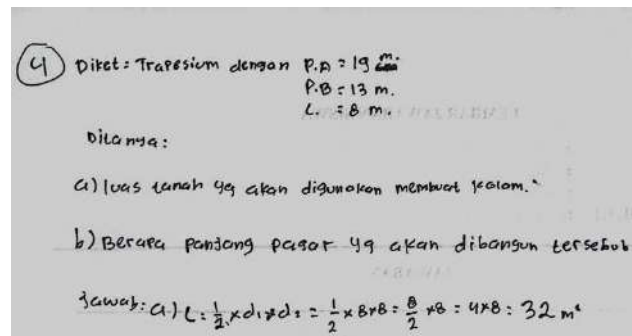 4 Diket: Trapesium dengan P.A = 19 m.
P.B = 13 m.
L. = 8 m.
Ditanya:
a) luas tanah yg akan digunakan membuat kolam.
b) Berapa panjang pagar yg akan dibangun tersebut
Jawab: a) L = 1/2 x d1 x d2 = 1/2 x 8 x 8 = 8/2 x 8 = 4 x 8 = 32 m²